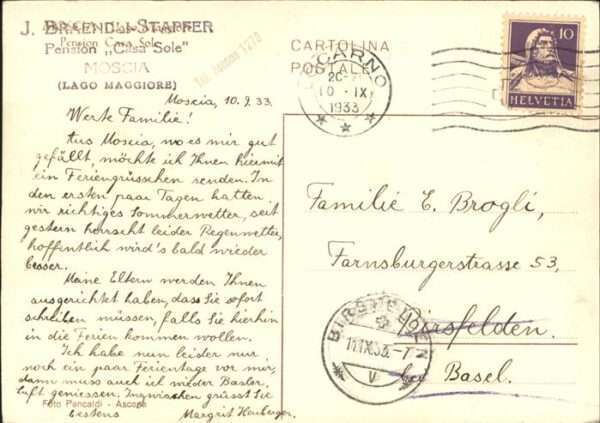 J. BRAENDLI-STAPFER
Pension Casa Sole
Pension „Casa Sole"
MOSCIA
(LAGO MAGGIORE)
CARTOLINA
POSTALE
LOCARNO
10.IX
1933
10
HELVETIA
Moscia, 10.9.33.
Werte Familie!
Aus Moscia, wo es mir gut
gefällt, möchte ich Ihnen hiermit
ein Feriengrüsschen senden. In
den ersten paar Tagen hatten
wir richtiges Sommerwetter, seit
gestern herrscht leider Regenwetter,
hoffentlich wird's bald wieder
besser.
Meine Eltern werden Ihnen
ausgerichtet haben, dass Sie sofort
schreiben müssen, falls Sie hierhin
in die Ferien kommen wollen.
Ich habe nun leider nur
noch ein paar Ferientage vor mir,
dann muss auch ich wieder Basler-
luft geniessen. Inzwischen grüsst Sie
bestens Margrit
Foto Pancaldi - Ascona
Familie E. Brogli,
Farnsburgerstrasse 53,
Birsfelden.
bei Basel.
BIRSFELDEN
11.IX.33.-7
V